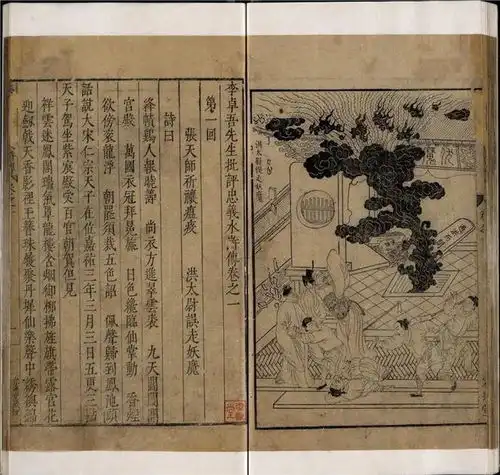 洪太尉誤走妖魔
李卓吾先生批評忠義水滸傳卷之一
第一回
張天師祈禳瘟疫 洪太尉誤走妖魔
詩曰
絳幘鷄人報曉籌 尚衣方進翠雲裘 九天閶闔開
宮殿 萬國衣冠拜冕旒 日色纔臨仙掌動 香烟
欲傍袞龍浮 朝罷須裁五色詔 佩聲歸到鳳池頭
話說大宋仁宗天子在位嘉祐三年三月三日五更三點
天子駕坐紫宸殿受百官朝賀但見
祥雲迷鳳閣瑞氣罩龍樓含烟御柳拂旌旗帶露宮花
迎劍戟天香影裡玉簪珠履聚丹墀仙樂聲中繡襖錦